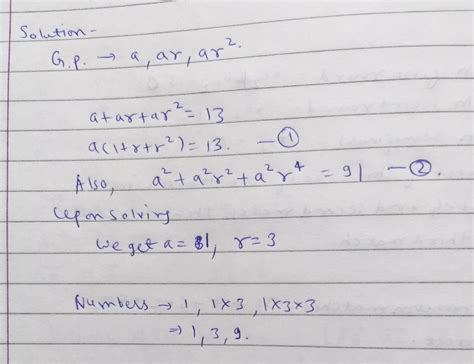 Solution -
G.p. → a, ar, ar².
a+ar+ar² = 13
a(1+r+r²) = 13. — ①
Also, a²+a²r²+a²r⁴ = 91 — ②.
Upon solving
We get a = 1, r = 3
Numbers → 1, 1×3, 1×3×3
⇒ 1, 3, 9.